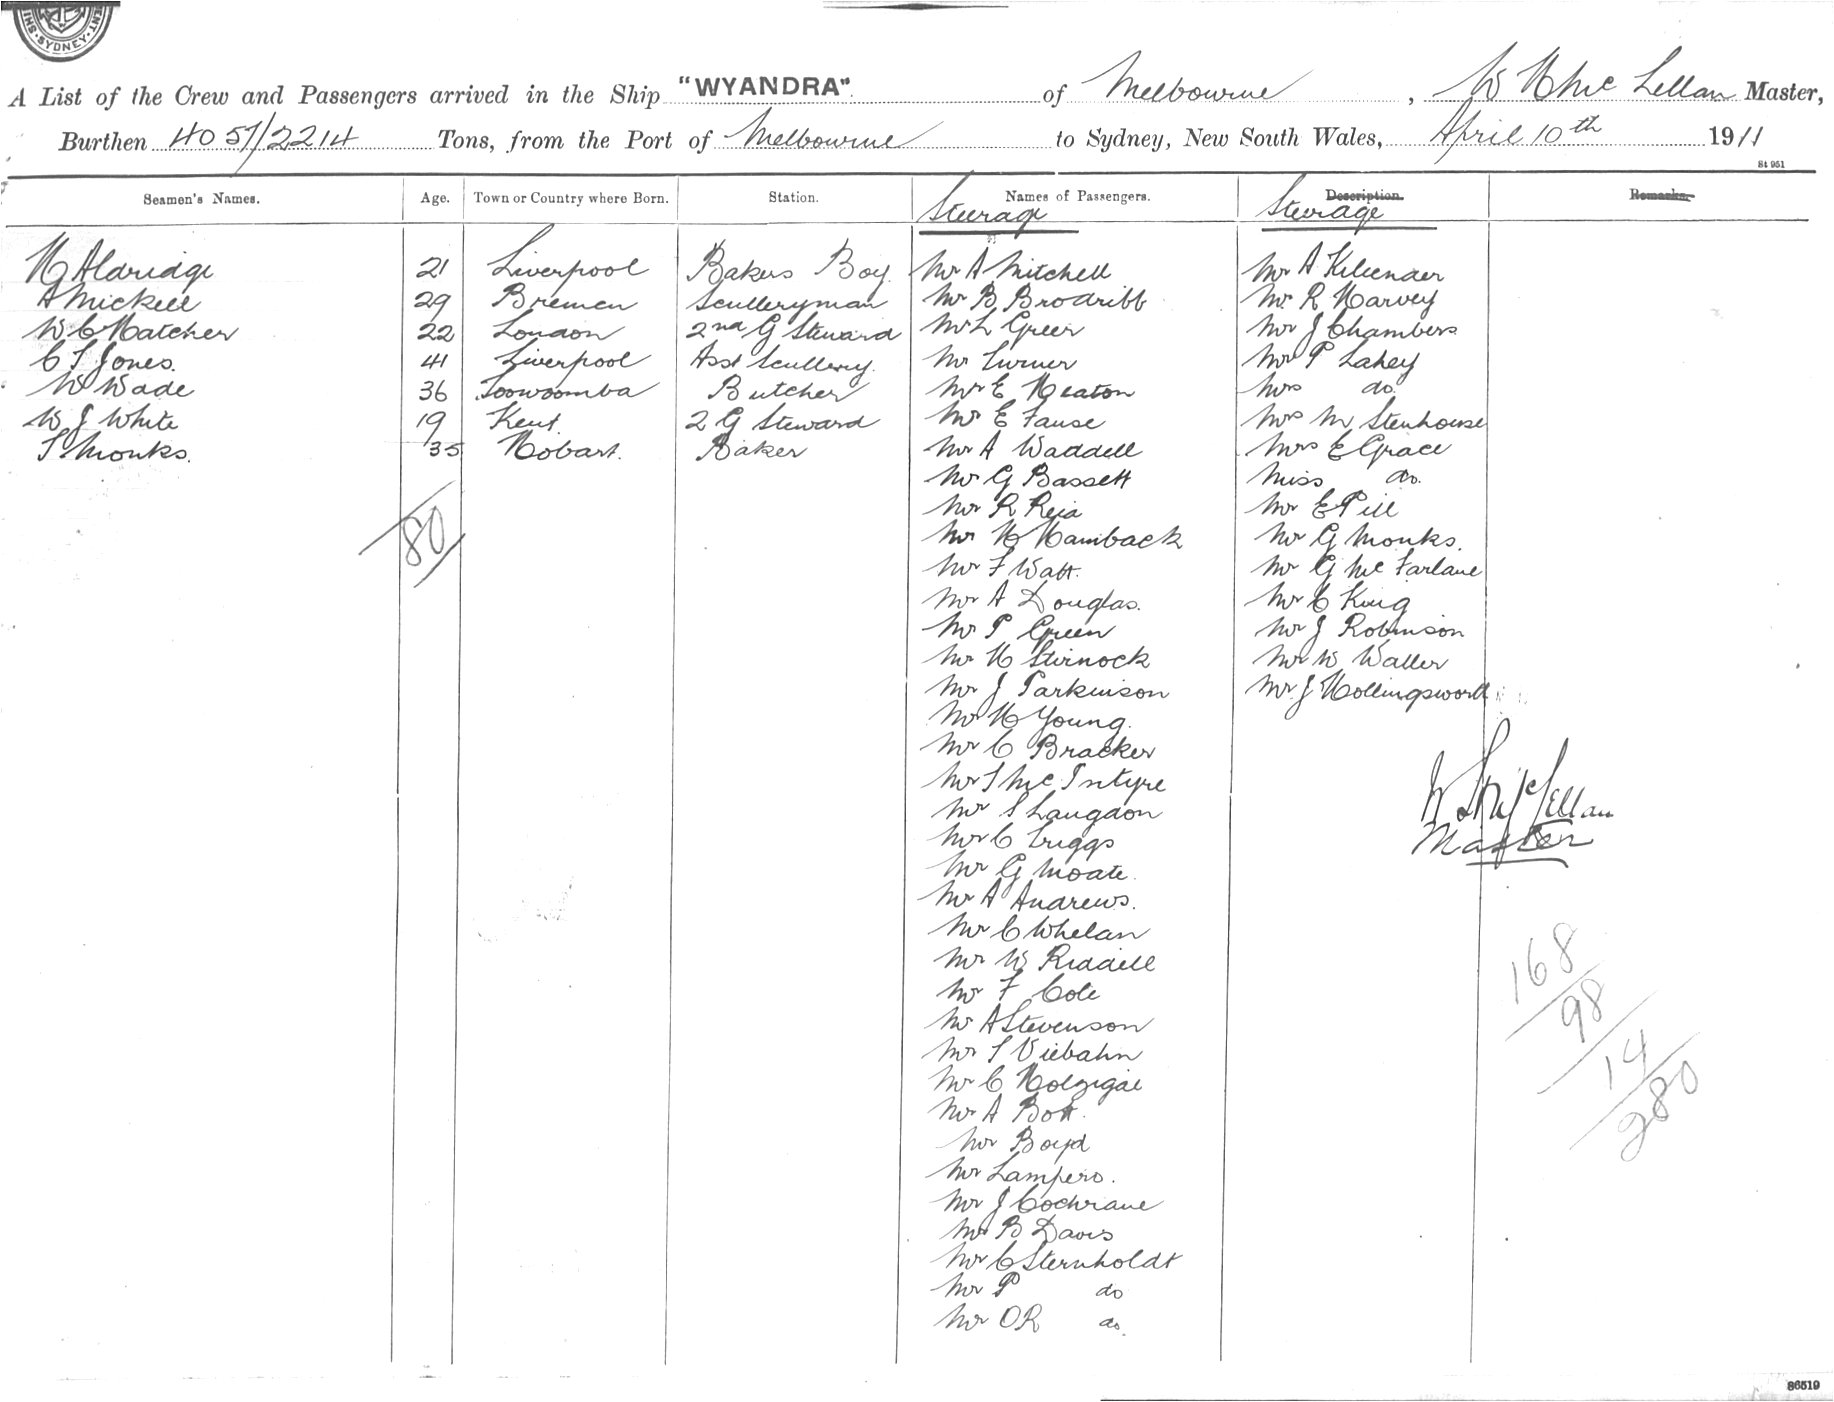 SYDNEY
A List of the Crew and Passengers arrived in the Ship "WYANDRA" of Melbourne, W H McLellan Master,
Burthen 4051/2214 Tons, from the Port of Melbourne to Sydney, New South Wales, April 10th 1911
St 951
Seamen's Names. Age. Town or Country where Born. Station. Names of Passengers. Description. Remarks.
Steerage Steerage
H Aldridge 21 Liverpool Bakers Boy Mr A Mitchell Mr A
A Mickell 29 Bremen Sculleryman Mr B Brodribb Mr R Harvey
W C Hatcher 22 London 2nd G Steward Mr L Greer Mr J Chambers
C T Jones. 41 Liverpool Asst Scullery. Mr Turner Mr P Lahey
W Wade 36 Toowoomba Butcher Mr E Heaton Mrs do.
W J White 19 Kent. 2 G Steward Mr E Fause Mrs M Stenhouse
T Monks. 35 Hobart. Baker Mr A Waddell Mrs E Grace
Mr G Bassett Miss do.
Mr R Reid Mr E Pill
80 Mr H Hamback Mr G Monks.
Mr F Watt. Mr G McFarlane
Mr A Douglas. Mr C King
Mr P Green Mr J Robinson
Mr H Stirnock Mr W Waller
Mr J Parkinson Mr J Hollingsworth
Mr H Young.
Mr C Bracker
Mr T McIntyre
Mr S Langdon
Mr C Triggs
Mr G Moate.
Mr A Andrews.
Mr C Whelan
Mr W Riddell
Mr F Cole
Mr A Stevenson
Mr T Viebahn
Mr C Holzigal
Mr A Bott.
Mr Boyd
Mr Lampero.
Mr J Cochrane
Mr B Davis
Mr C Sternholdt
Mr P do
Mr OR do.
W H McLellan
Master
168
98
14
280
86519